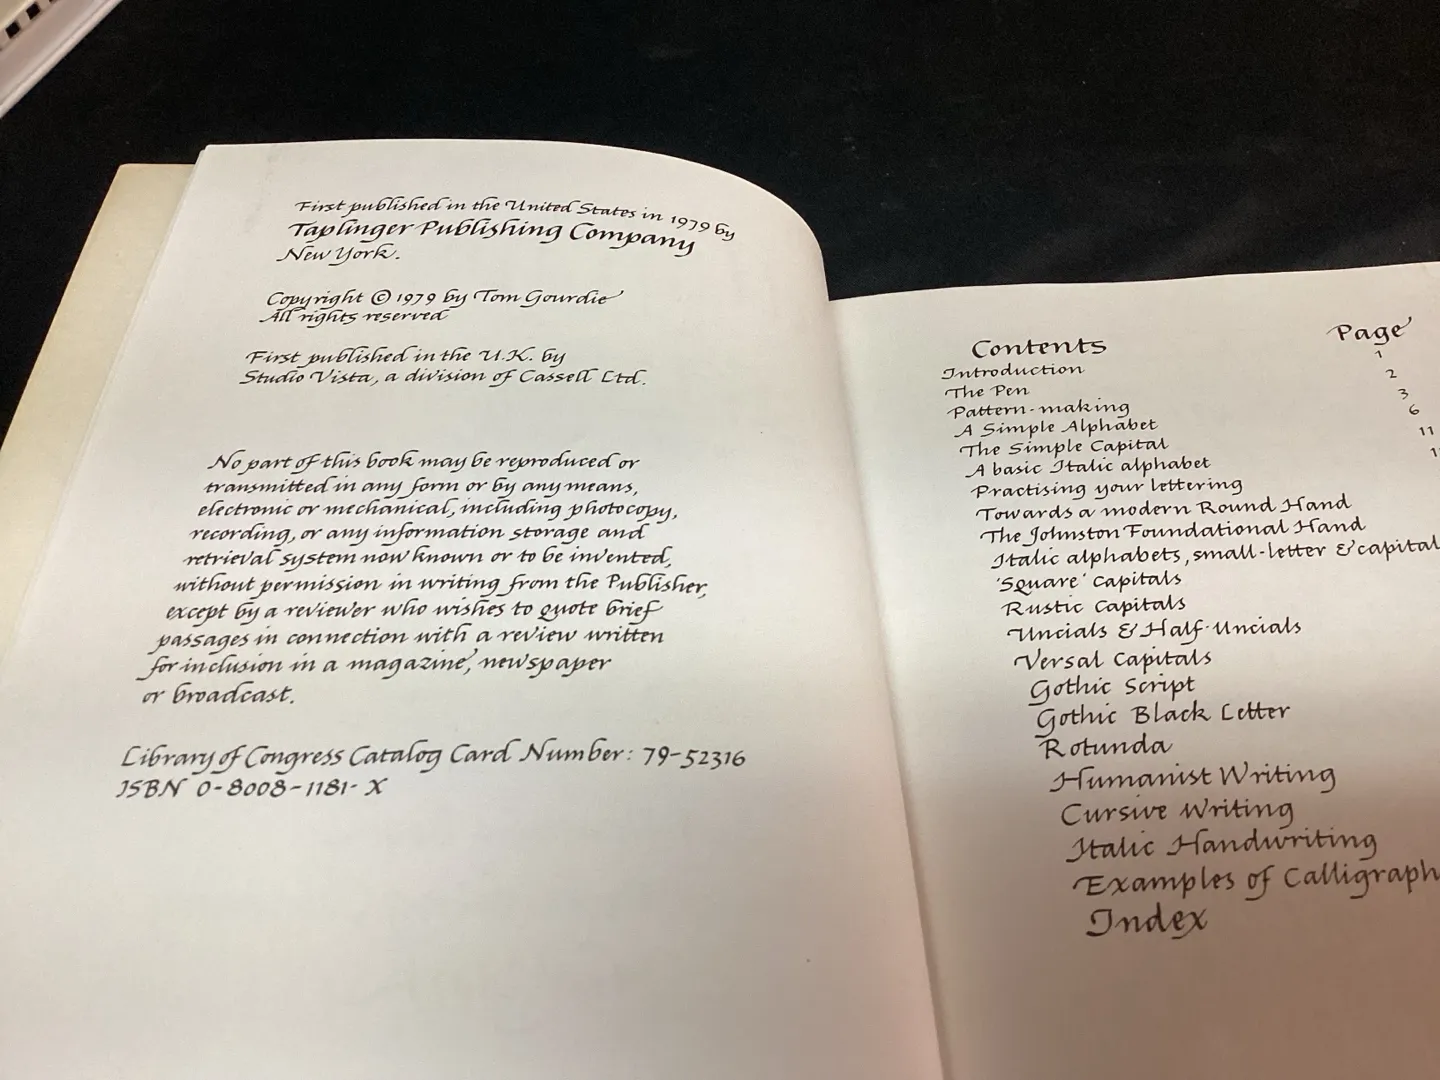 First published in the United States in 1979 by
Taplinger Publishing Company
New York.
Copyright © 1979 by Tom Gourdie
All rights reserved
First published in the U.K. by
Studio Vista, a division of Cassell Ltd.
No part of this book may be reproduced or
transmitted in any form or by any means,
electronic or mechanical, including photocopy,
recording, or any information storage and
retrieval system now known or to be invented,
without permission in writing from the Publisher,
except by a reviewer who wishes to quote brief
passages in connection with a review written
for inclusion in a magazine, newspaper
or broadcast.
Library of Congress Catalog Card Number: 79-52316
ISBN 0-8008-1181-X
Contents Page
Introduction 1
The Pen 2
Pattern-making 3
A Simple Alphabet 6
The Simple Capital 11
A basic Italic alphabet
Practising your lettering
Towards a modern Round Hand
The Johnston Foundational Hand
Italic alphabets, small-letter & capital
'Square' Capitals
Rustic Capitals
Uncials & Half-Uncials
Versal Capitals
Gothic Script
Gothic Black Letter
Rotunda
Humanist Writing
Cursive Writing
Italic Handwriting
Examples of
Index